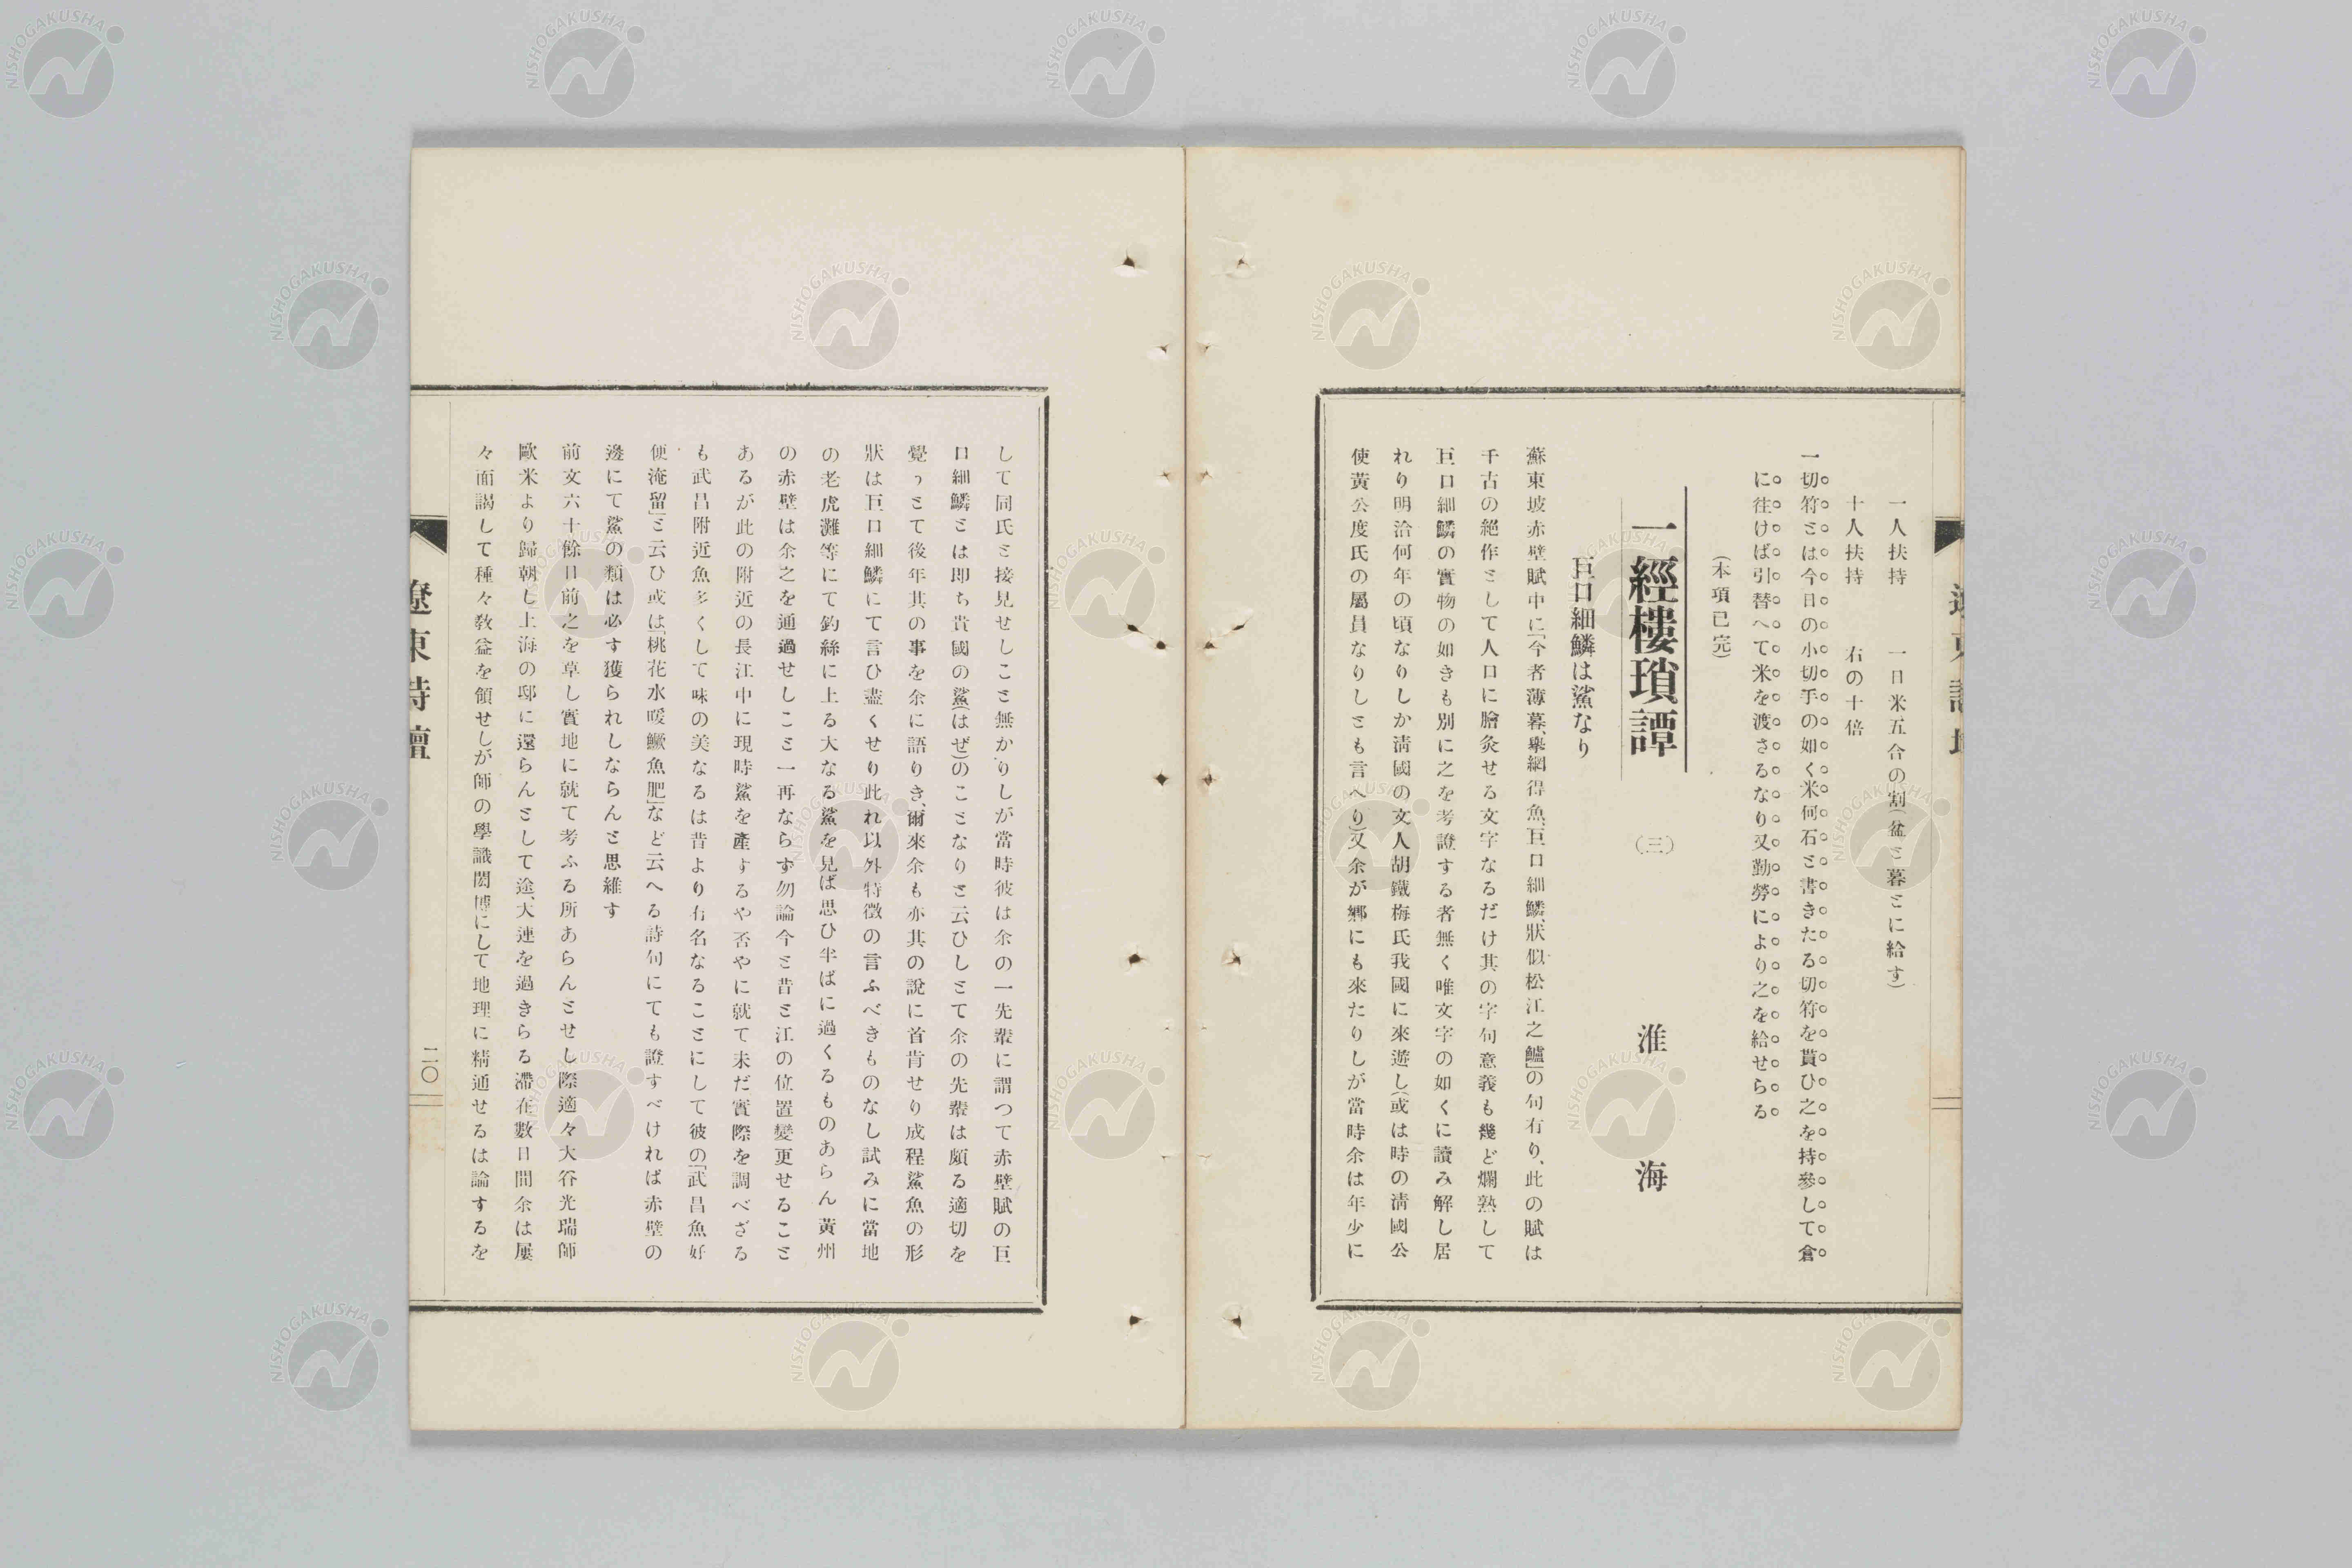 一人扶持　一日米五合の割(盆と暮とに給す)
十人扶持　右の十倍
一切符とは今日の小切手の如く米何石と書きたる切符を貰ひ之を持參して倉
に往けば引替へて米を渡さるなり又勤勞により之を給せらる
(本項已完)
一經樓瑣譚　(三)　淮海
巨口細鱗は鯊なり
蘇東坡赤壁賦中に「今者薄暮、擧網得魚、巨口細鱗、狀似松江之鱸」の句有り、此の賦は
千古の絕作として人口に膾灸せる文字なるだけ其の字句意義も幾ど爛熟して
巨口細鱗の實物の如きも別に之を考證する者無く唯文字の如くに讀み解し居
れり明治何年の頃なりしか淸國の文人胡鐵梅氏我國に來遊し(或は時の淸國公
使黃公度氏の屬員なりしとも言へり)又余が鄕にも來たりしが當時余は年少に
して同氏と接見せしこと無かりしが當時彼は余の一先輩に謂つて赤壁賦の巨
口細鱗とは卽ち貴國の鯊(はぜ)のことなりと云ひしとて余の先輩は頗る適切を
覺つとて後年其の事を余に語りき、爾來余も亦其の說に首肯せり成程鯊魚の形
狀は巨口細鱗にて言ひ盡くせり此れ以外特徵の言ふべきものなし試みに當地
の老虎灘等にて釣絲に上る大なる鯊を見ば思ひ半ばに過くるものあらん黃州
の赤壁は余之を通過せしこと一再ならず勿論今と昔と江の位置變更せること
あるが此の附近の長江中に現時鯊を產するや否やに就て未だ實際を調べざる
も武昌附近魚多くして味の美なるは昔より有名なることにして彼の「武昌魚好
便淹留」と云ひ或は「桃花水暖鱖魚肥」など云へる詩句にても證すべければ赤壁の
邊にて鯊の類は必す獲られしならんと思維す
前文六十餘日前之を草し實地に就て考ふる所あらんとせし際適々大谷光瑞師
歐米より歸朝し上海の邸に還らんとして途、大連を過きらる滯在數日間余は屢
々面謁して種々敎益を領せしが師の學識閎博にして地理に精通せるは論するを
遼東詩壇
二〇